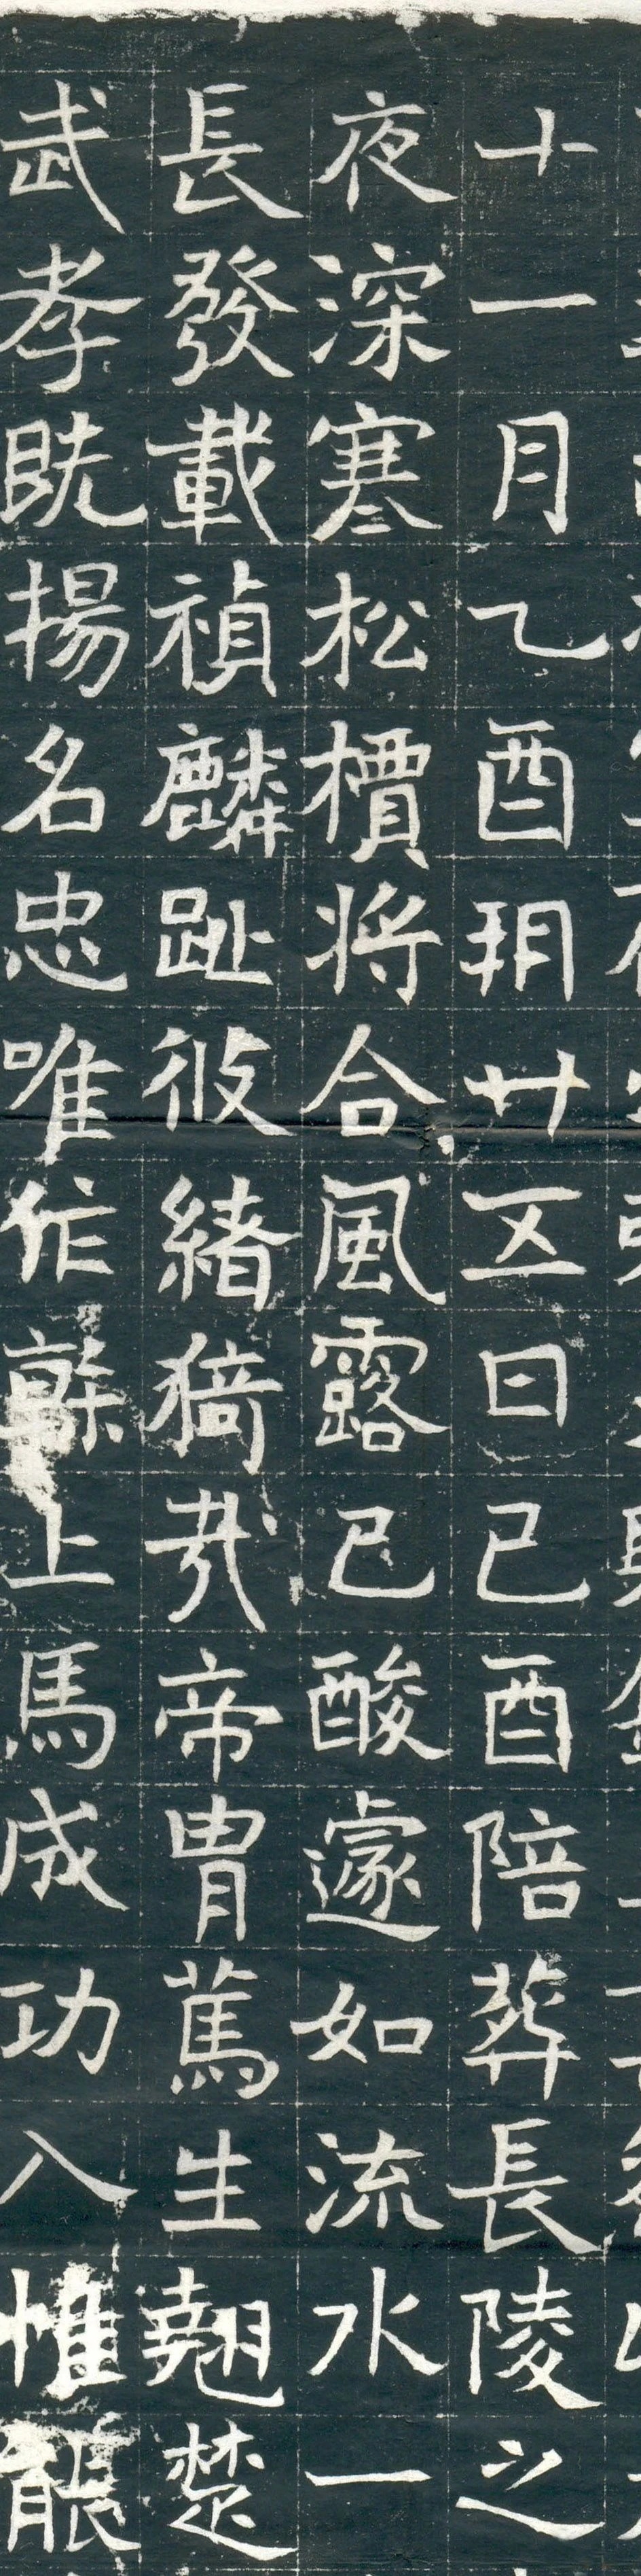 十一月乙酉玥廿五日己酉陪葬長陵之
夜深寒松檟将合風露已酸遽如流水一
長發載禎麟趾彼緒猗㢤帝胄篤生翹楚
武孝既揚名忠唯作幹上馬成功入惟